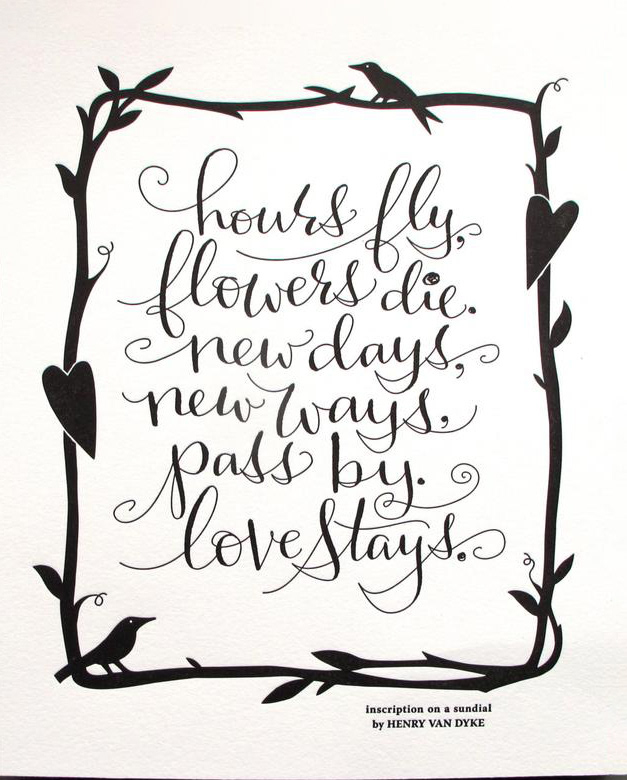 hours fly,
flowers die.
new days,
new ways,
pass by.
love stays.
inscription on a sundial
by HENRY VAN DYKE